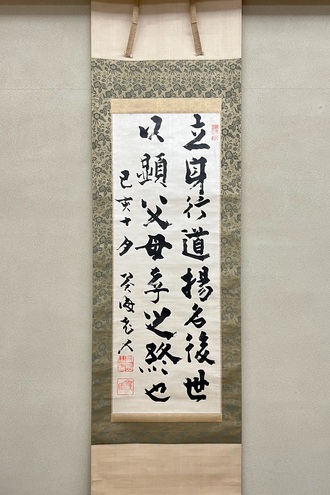 立身行道揚名後世
以顯父母孝之終也
己亥十夕 海老人